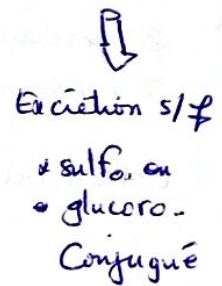 Excrétion s/f
• sulfo. ou
• glucoro-
Conjugué